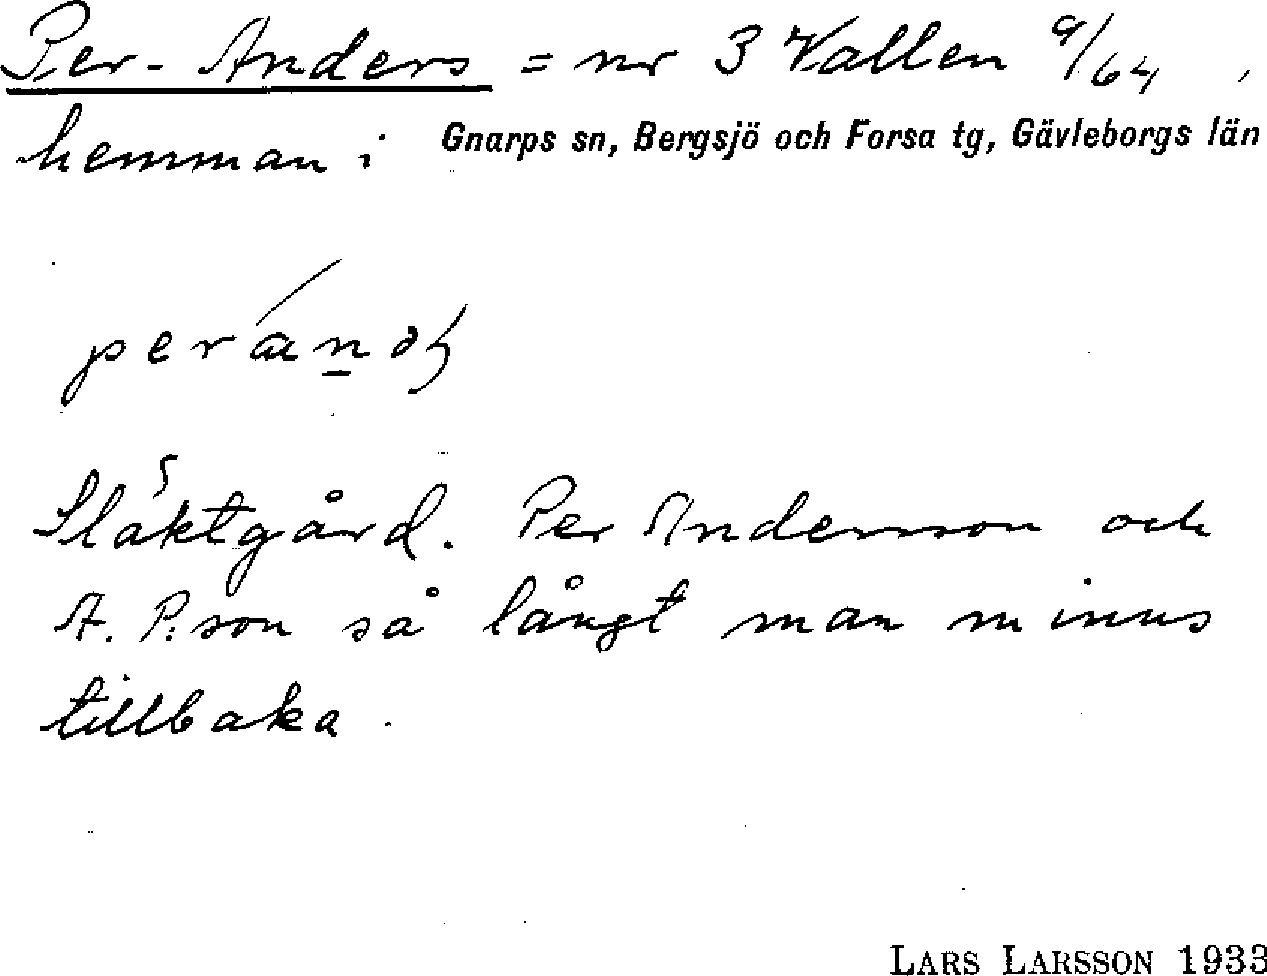 Per-Anders = nr 3 Vallen 9/64,
hemman i Gnarps sn, Bergsjö och Forsa tg, Gävleborgs län
Släktgård. Per Andersson och
A. P:son så långt man minns
tillbaka.
LARS LARSSON 1933